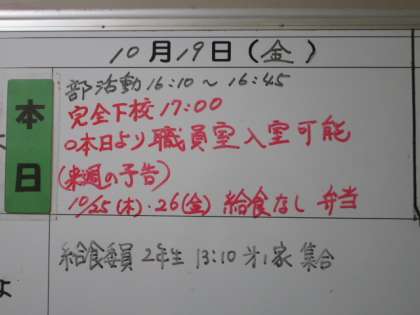 10月19日(金)
本日
部活動16:10～16:45
完全下校17:00
○本日より職員室入室可能
(来週の予告)
10/25(木)・26(金) 給食なし 弁当
給食委員 2年生 13:10 オ1家 集合
よ